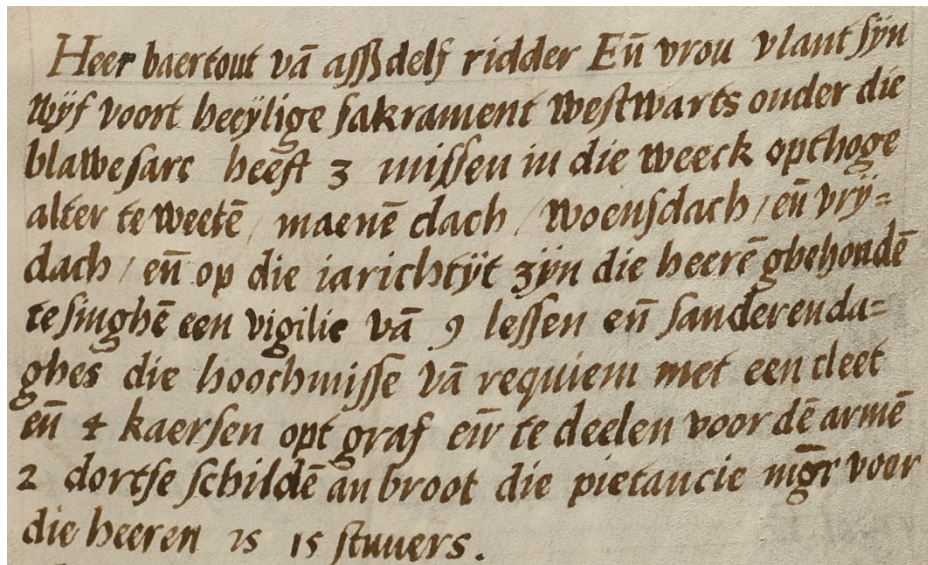 Heer baertout vā assdelf ridder Eñ vrou vlant sÿn
wÿf voort heeÿlige sakrament westwarts onder die
blawesarc heeft 3 missen in die weeck opthoge
alter te weetē / maenē dach / woensdach / eñ vrÿ=
dach / eñ op die iarichtÿt zÿn die heerē ghehondē
te singhē een vigilie vā 9 lessen eñ sanderenda=
ghes die hoochmisse vā requiem met een cleet
eñ 4 kaersen opt graf eñ te deelen voor dē armē
2 dortse schildē an broot die pietancie voer
die heeren is 15 stuuers.